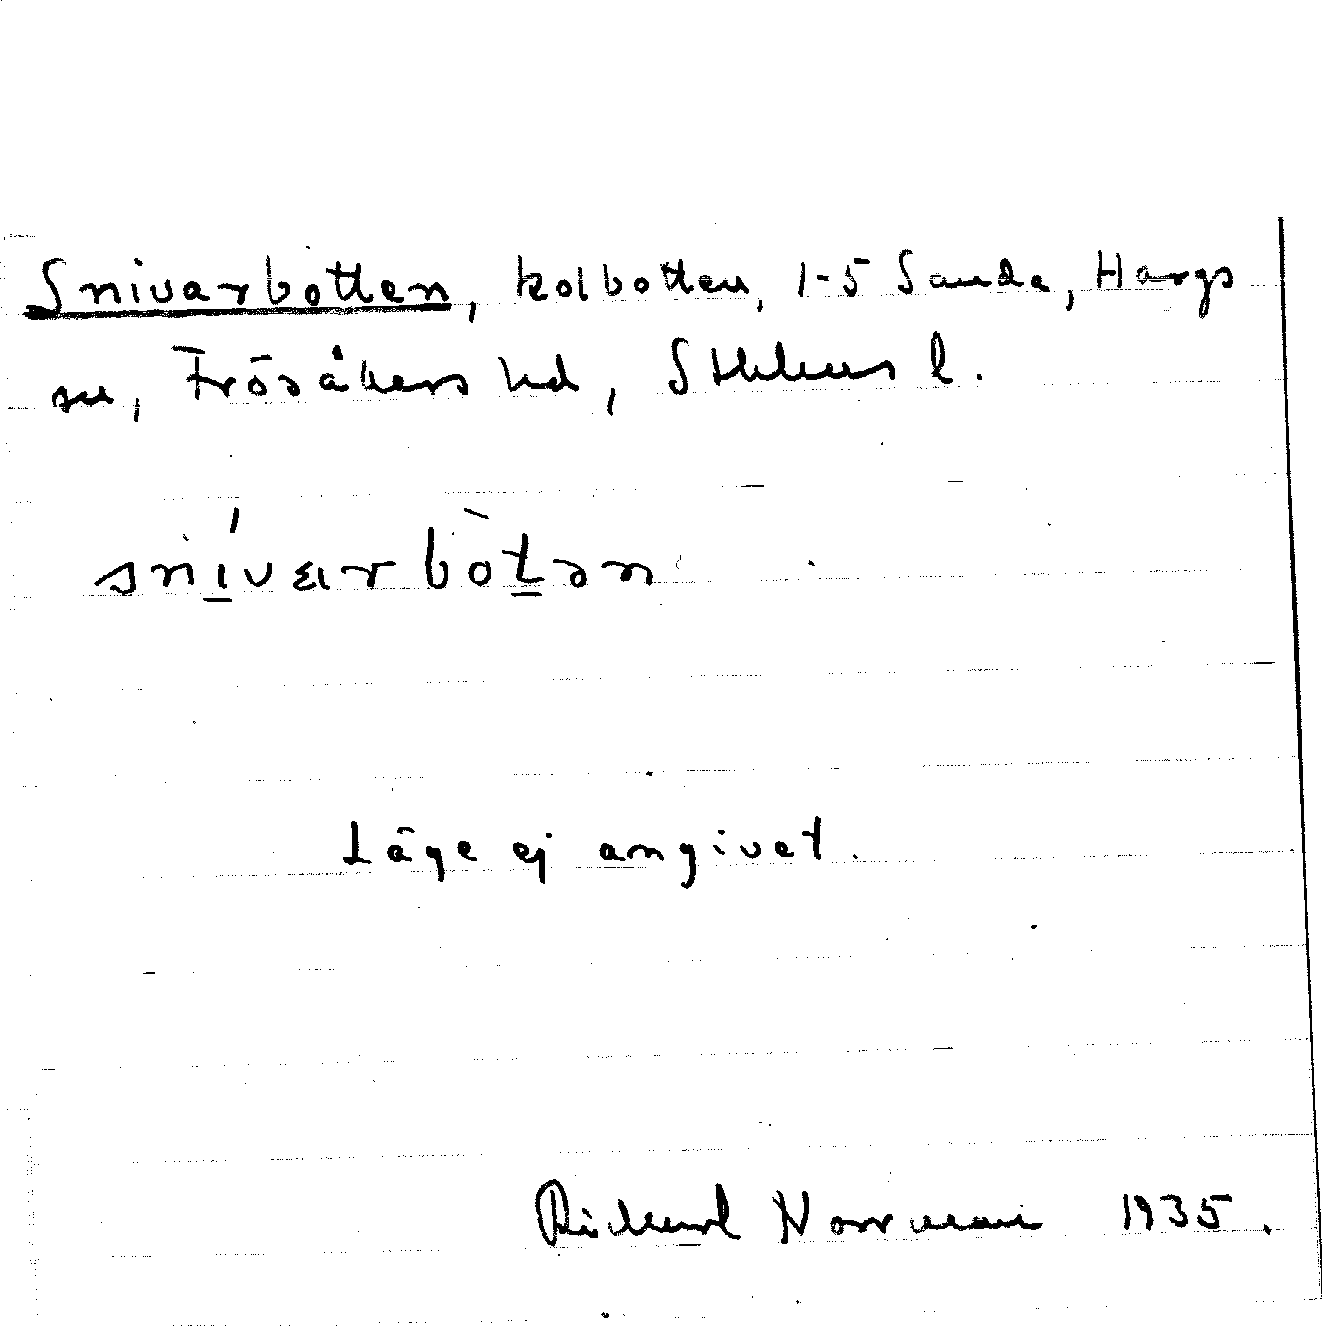 Snivarbotten, kolbotten, 1-5 Sanda, Hargs
sn, Frösåkers hd, Sthlms l.
snívarbòtən
Läge ej angivet.
Richard Norrman 1935.